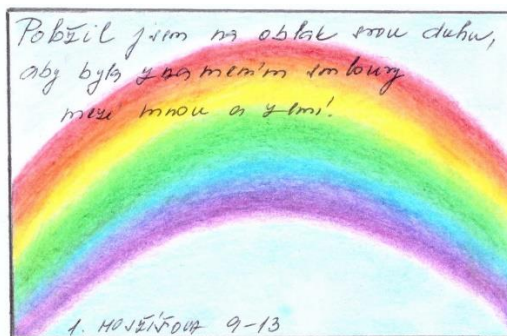 Položil jsem na oblak svou duhu,
aby byla znamením smlouvy
mezi mnou a zemí!
1. MOJŽÍŠOVA 9-13